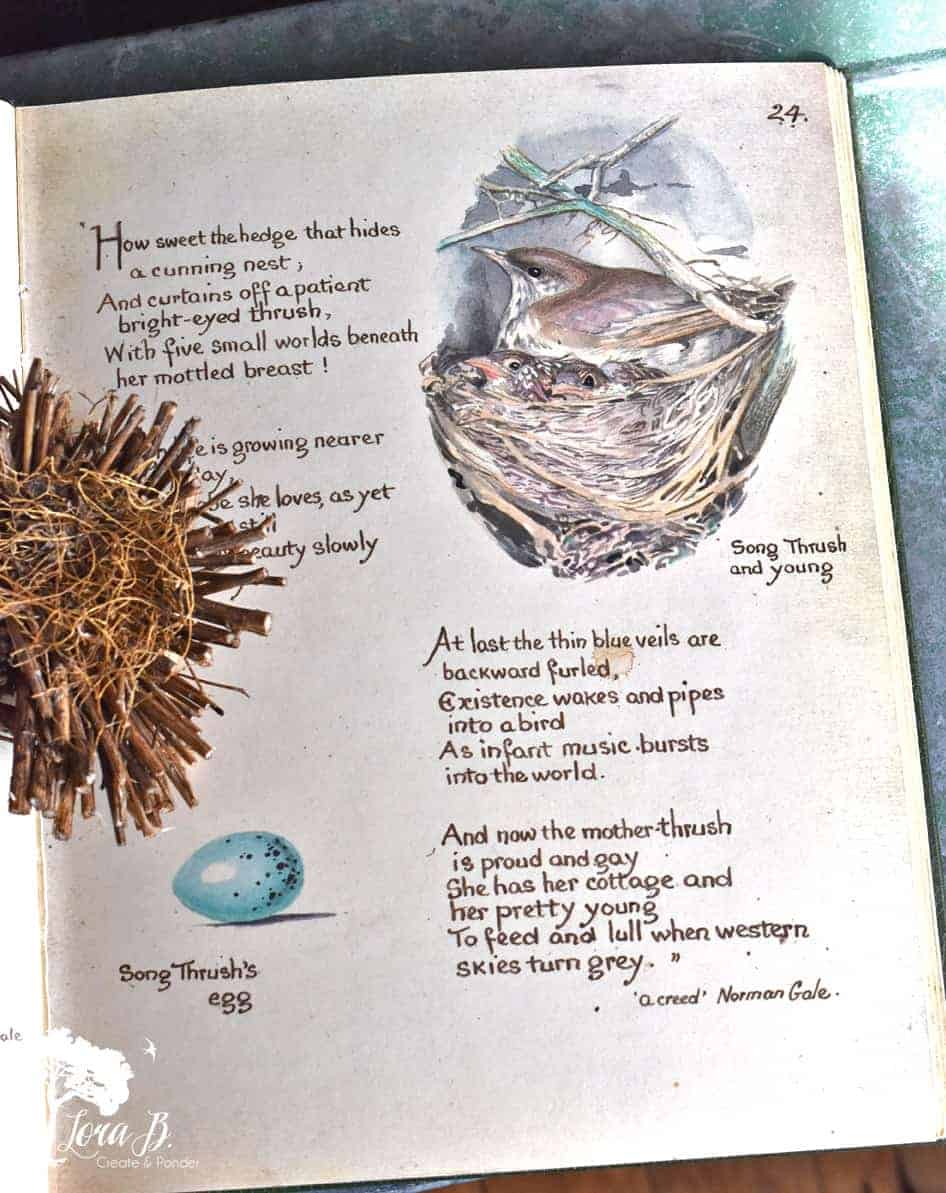 24.
'How sweet the hedge that hides
a cunning nest;
And curtains off a patient
bright-eyed thrush,
With five small worlds beneath
her mottled breast!
is growing nearer
she loves, as yet
slowly
Song Thrush
and young
At last the thin blue veils are
backward furled,
Existence wakes and pipes
into a bird
As infant music bursts
into the world.
And now the mother-thrush
is proud and gay
She has her cottage and
her pretty young
To feed and lull when western
skies turn grey."
'a creed' Norman Gale.
Song Thrush's
egg
Lora B.
Create & Ponder